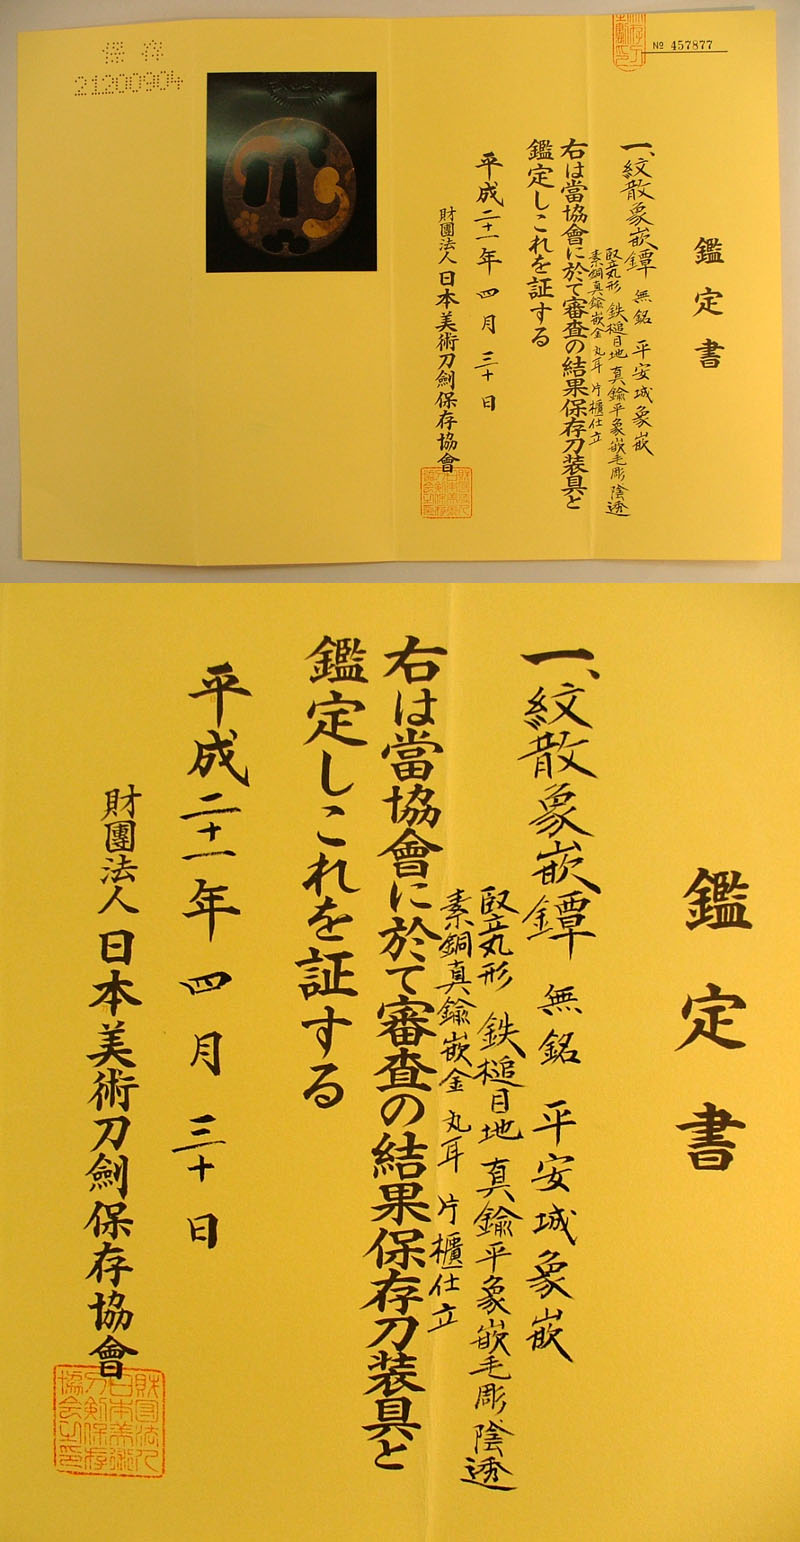 保存
21200904
№ 457877
鑑定書
一、紋散象嵌鐔 無銘 平安城象嵌
竪丸形 鉄槌目地 真鍮平象嵌毛彫 陰透
素銅真鍮嵌金 丸耳 片櫃仕立
右は當協會に於て審査の結果保存刀装具と
鑑定しこれを証する
平成二十一年 四月 三十日
財團法人 日本美術刀劍保存協會
鑑定書
一、紋散象嵌鐔 無銘 平安城象嵌
竪丸形 鉄槌目地 真鍮平象嵌毛彫 陰透
素銅真鍮嵌金 丸耳 片櫃仕立
右は當協會に於て審査の結果保存刀装具と
鑑定しこれを証する
平成二十一年 四月 三十日
財團法人 日本美術刀劍保存協會